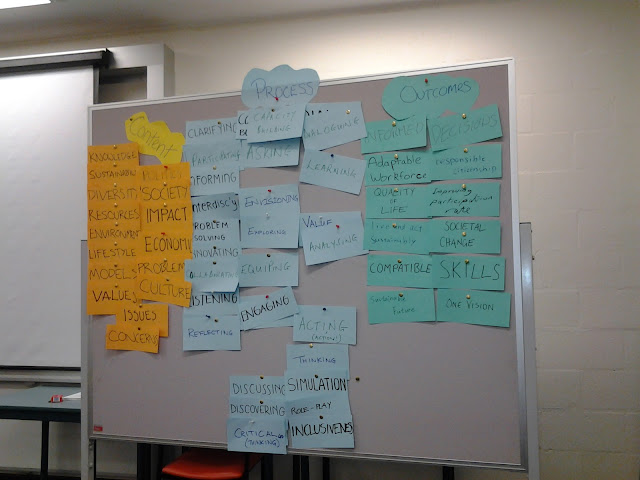 Content
KNOWLEDGE
SUSTAINABI
DIVERSITY
RESOURCES
ENVIRONMENT
LIFESTYLE
MODELS
VALUES
SOCIETY
IMPACT
ECONOMI
PROBLEM
CULTURE
ISSUES
CONCERN
PROCESS
CAPACITY
BUILDING
CLARIFYING
Participating
INFORMING
PROBLEM
SOLVING
INNOVATING
LISTENING
REFLECTING
ASKING
ENVISIONING
+
EXPLORING
EQUITING
ENGAGING
DIALOGUING
LEARNING
VALUE
ANALYSING
ACTING
(ACTION!)
THINKING
SIMULATION
ROLE-PLAY
INCLUSIVENES
DISCUSSING
DISCOVERING
CRITICAL
(THINKING)
OUTCOMES
INFORMED
DECISIONS
Adaptable
Workforce
responsible
citizenship
QUALITY
OF
LIFE
Improving
participation
rate
Sustainably
SOCIETAL
CHANGE
COMPATIBLE
SKILLS
Sustainable
Future
ONE VISION